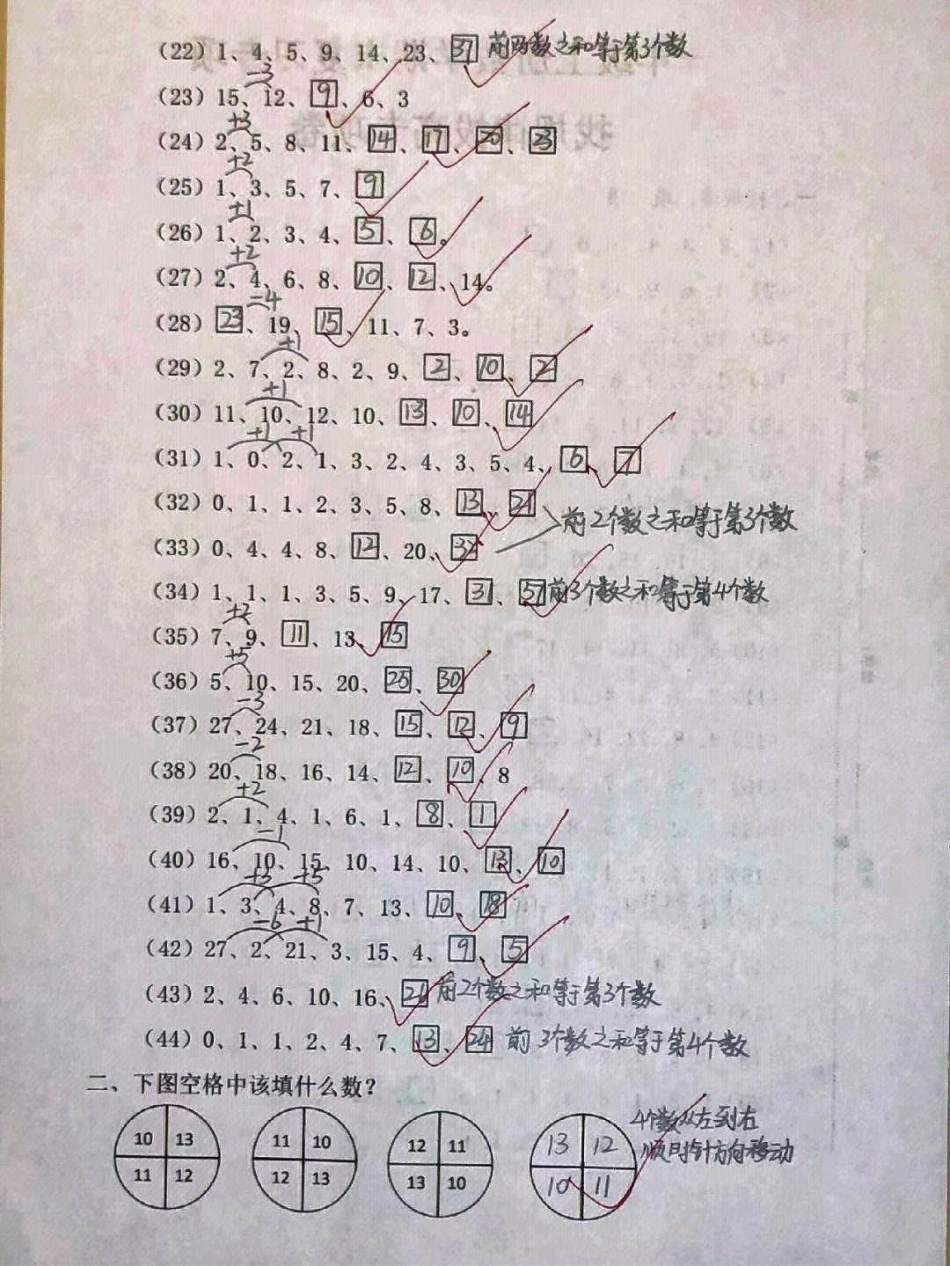 (22) 1、4、5、9、14、23、37 前两数之和等于第3个数
-3
(23) 15、12、9、6、3
+3
(24) 2、5、8、11、14、17、20、23
+2
(25) 1、3、5、7、9
+1
(26) 1、2、3、4、5、6。
+2
(27) 2、4、6、8、10、12、14。
-4
(28) 23、19、15、11、7、3。
+1
(29) 2、7、2、8、2、9、2、10、2
+1
(30) 11、10、12、10、13、10、14
+1 +1
(31) 1、0、2、1、3、2、4、3、5、4、6、7
(32) 0、1、1、2、3、5、8、13、21
前2个数之和等于第3个数
(33) 0、4、4、8、12、20、32
(34) 1、1、1、3、5、9、17、31、57 前3个数之和等于第4个数
+2
(35) 7、9、11、13、15
+5
(36) 5、10、15、20、25、30
-3
(37) 27、24、21、18、15、12、9
-2
(38) 20、18、16、14、12、10、8
+2
(39) 2、1、4、1、6、1、8、1
-1
(40) 16、10、15、10、14、10、13、10
+3 +5
(41) 1、3、4、8、7、13、10、18
-6 +1
(42) 27、2、21、3、15、4、9、5
(43) 2、4、6、10、16、 前2个数之和等于第3个数
(44) 0、1、1、2、4、7、13、24 前3个数之和等于第4个数
二、下图空格中该填什么数？
10 13 11 10 12 11 13 12 4个数从左到右
11 12 12 13 13 10 10 11 顺时针方向移动